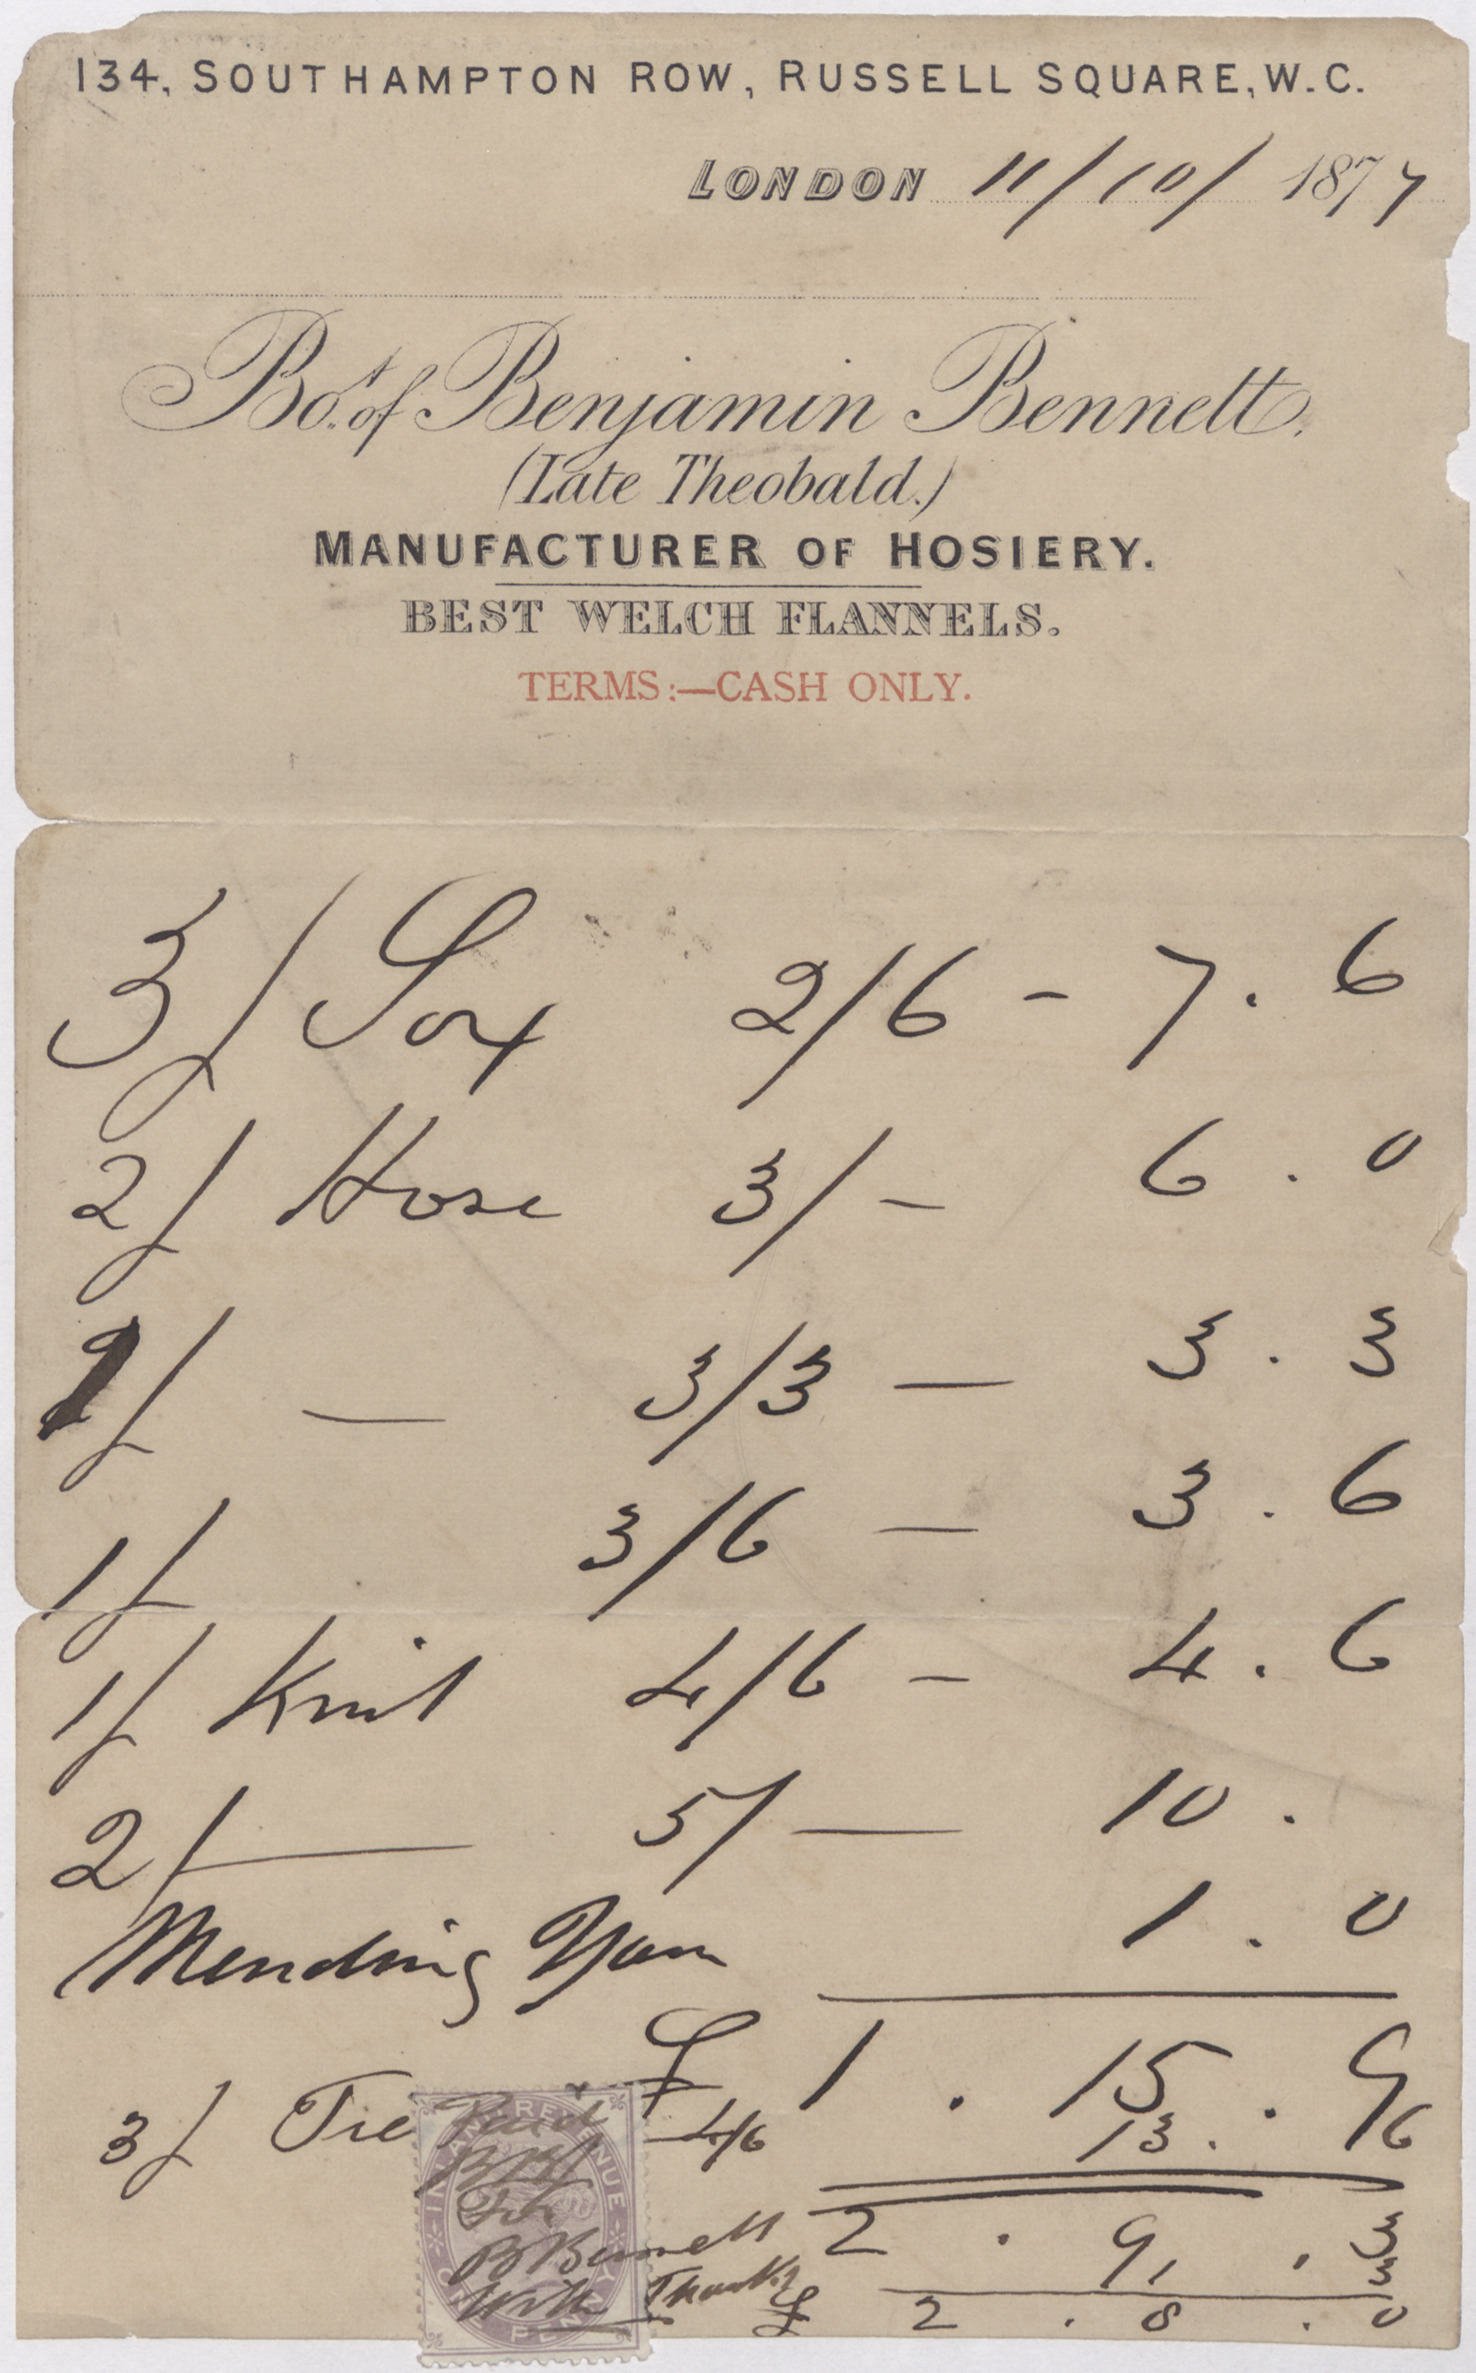 134, SOUTHAMPTON ROW, RUSSELL SQUARE, W.C.
LONDON 11/10/1877
Bo.t of Benjamin Bennett.
(Late Theobald.)
MANUFACTURER OF HOSIERY.
BEST WELCH FLANNELS.
TERMS:—CASH ONLY.
3/ Sox 2/6 - 7.6
2/ Hose 3/- 6.0
1/ — 3/3 — 3.3
1/ 3/6 — 3.6
1/ Knit 4/6 - 4.6
2/ — 5/ — 10.
Mending Yarn 1.0
£ 1.15.9
3/ 4/6 13.6
2.9.3
3
£ 2.8.0
INLAND REVENUE
ONE PENNY
Paid
For
B Bennett
With Thanks